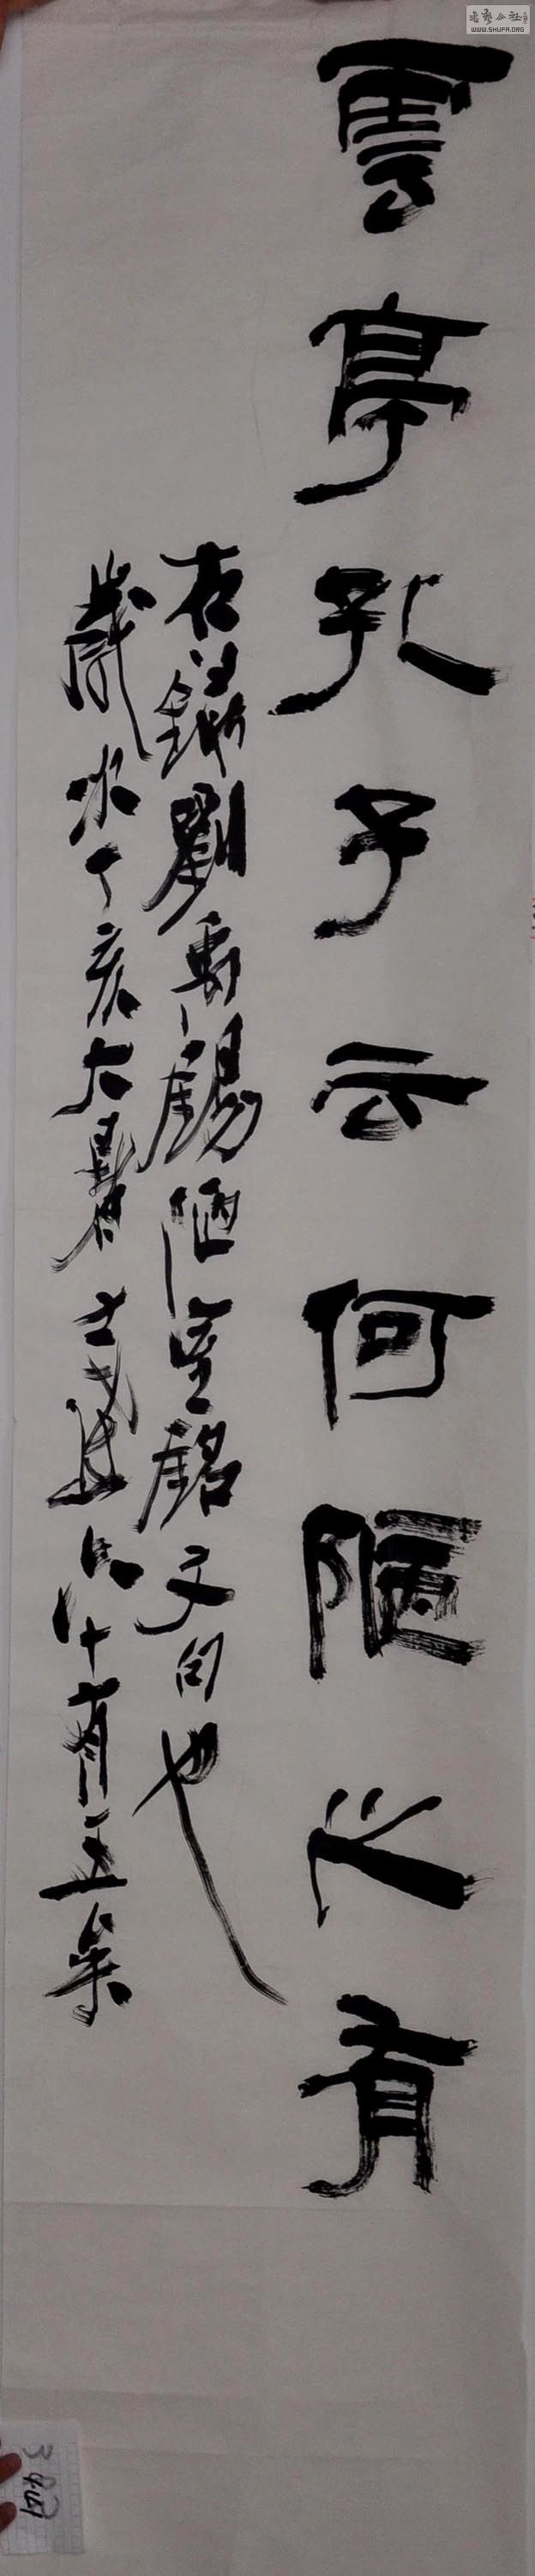 雲亭孔子云何陋之有
右録劉禹錫陋室銘文句也
歲次丁亥大暑 十有五矣
書藝公社
WWW.SHUFA.ORG